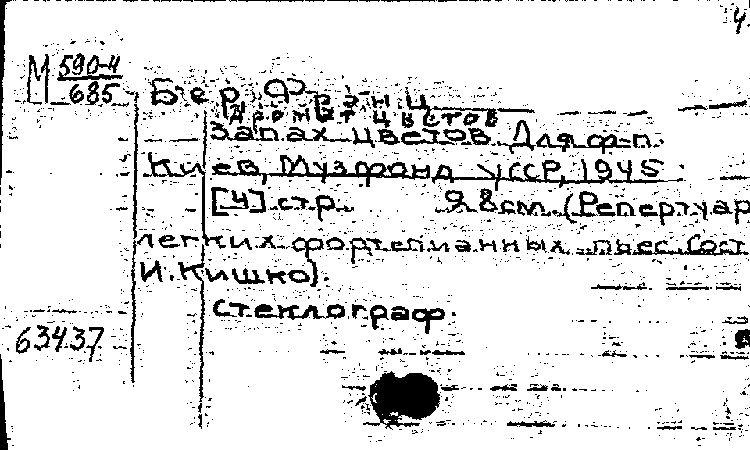 4
М 590-4
685
Бер, Франц
Аромат цветов
Запах цветов. Для ф-п.
Киев, Музфонд УССР, 1945.
[4] стр. 28см. (Репертуар
легких фортепианных пьес. Сост.
И. Кишко).
Стеклограф.
63437